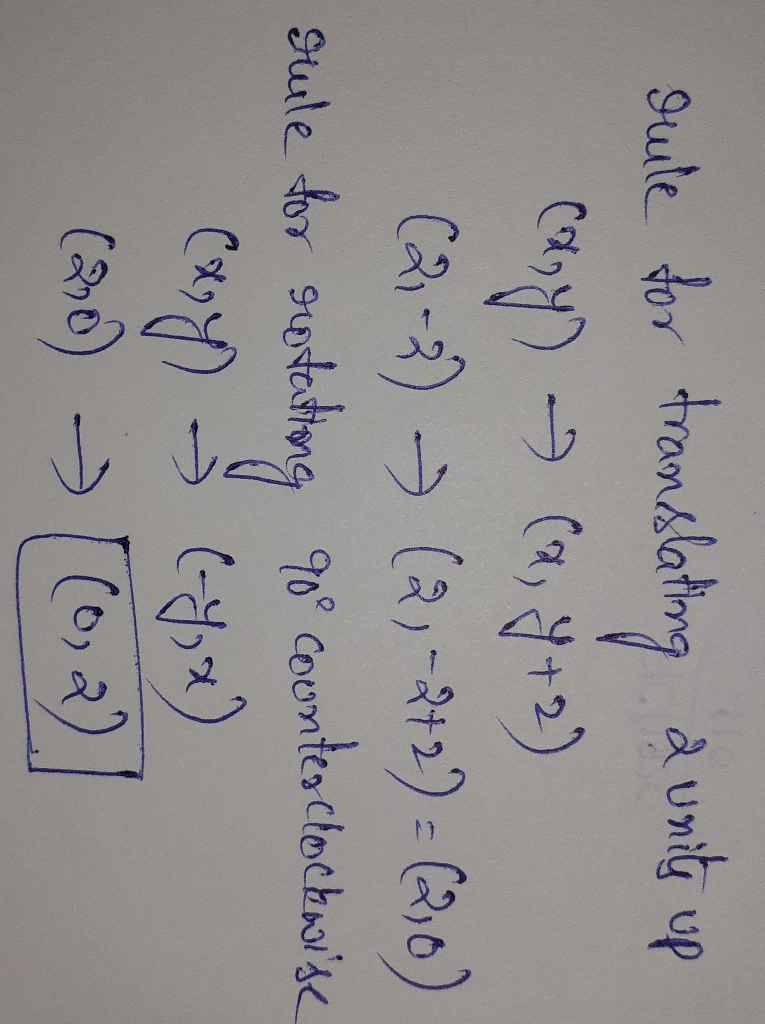 rule for translating 2 units up
(x,y) → (x, y+2)
(2,-2) → (2,-2+2) = (2,0)
rule for rotating 90° counterclockwise
(x,y) → (-y,x)
(2,0) → (0,2)